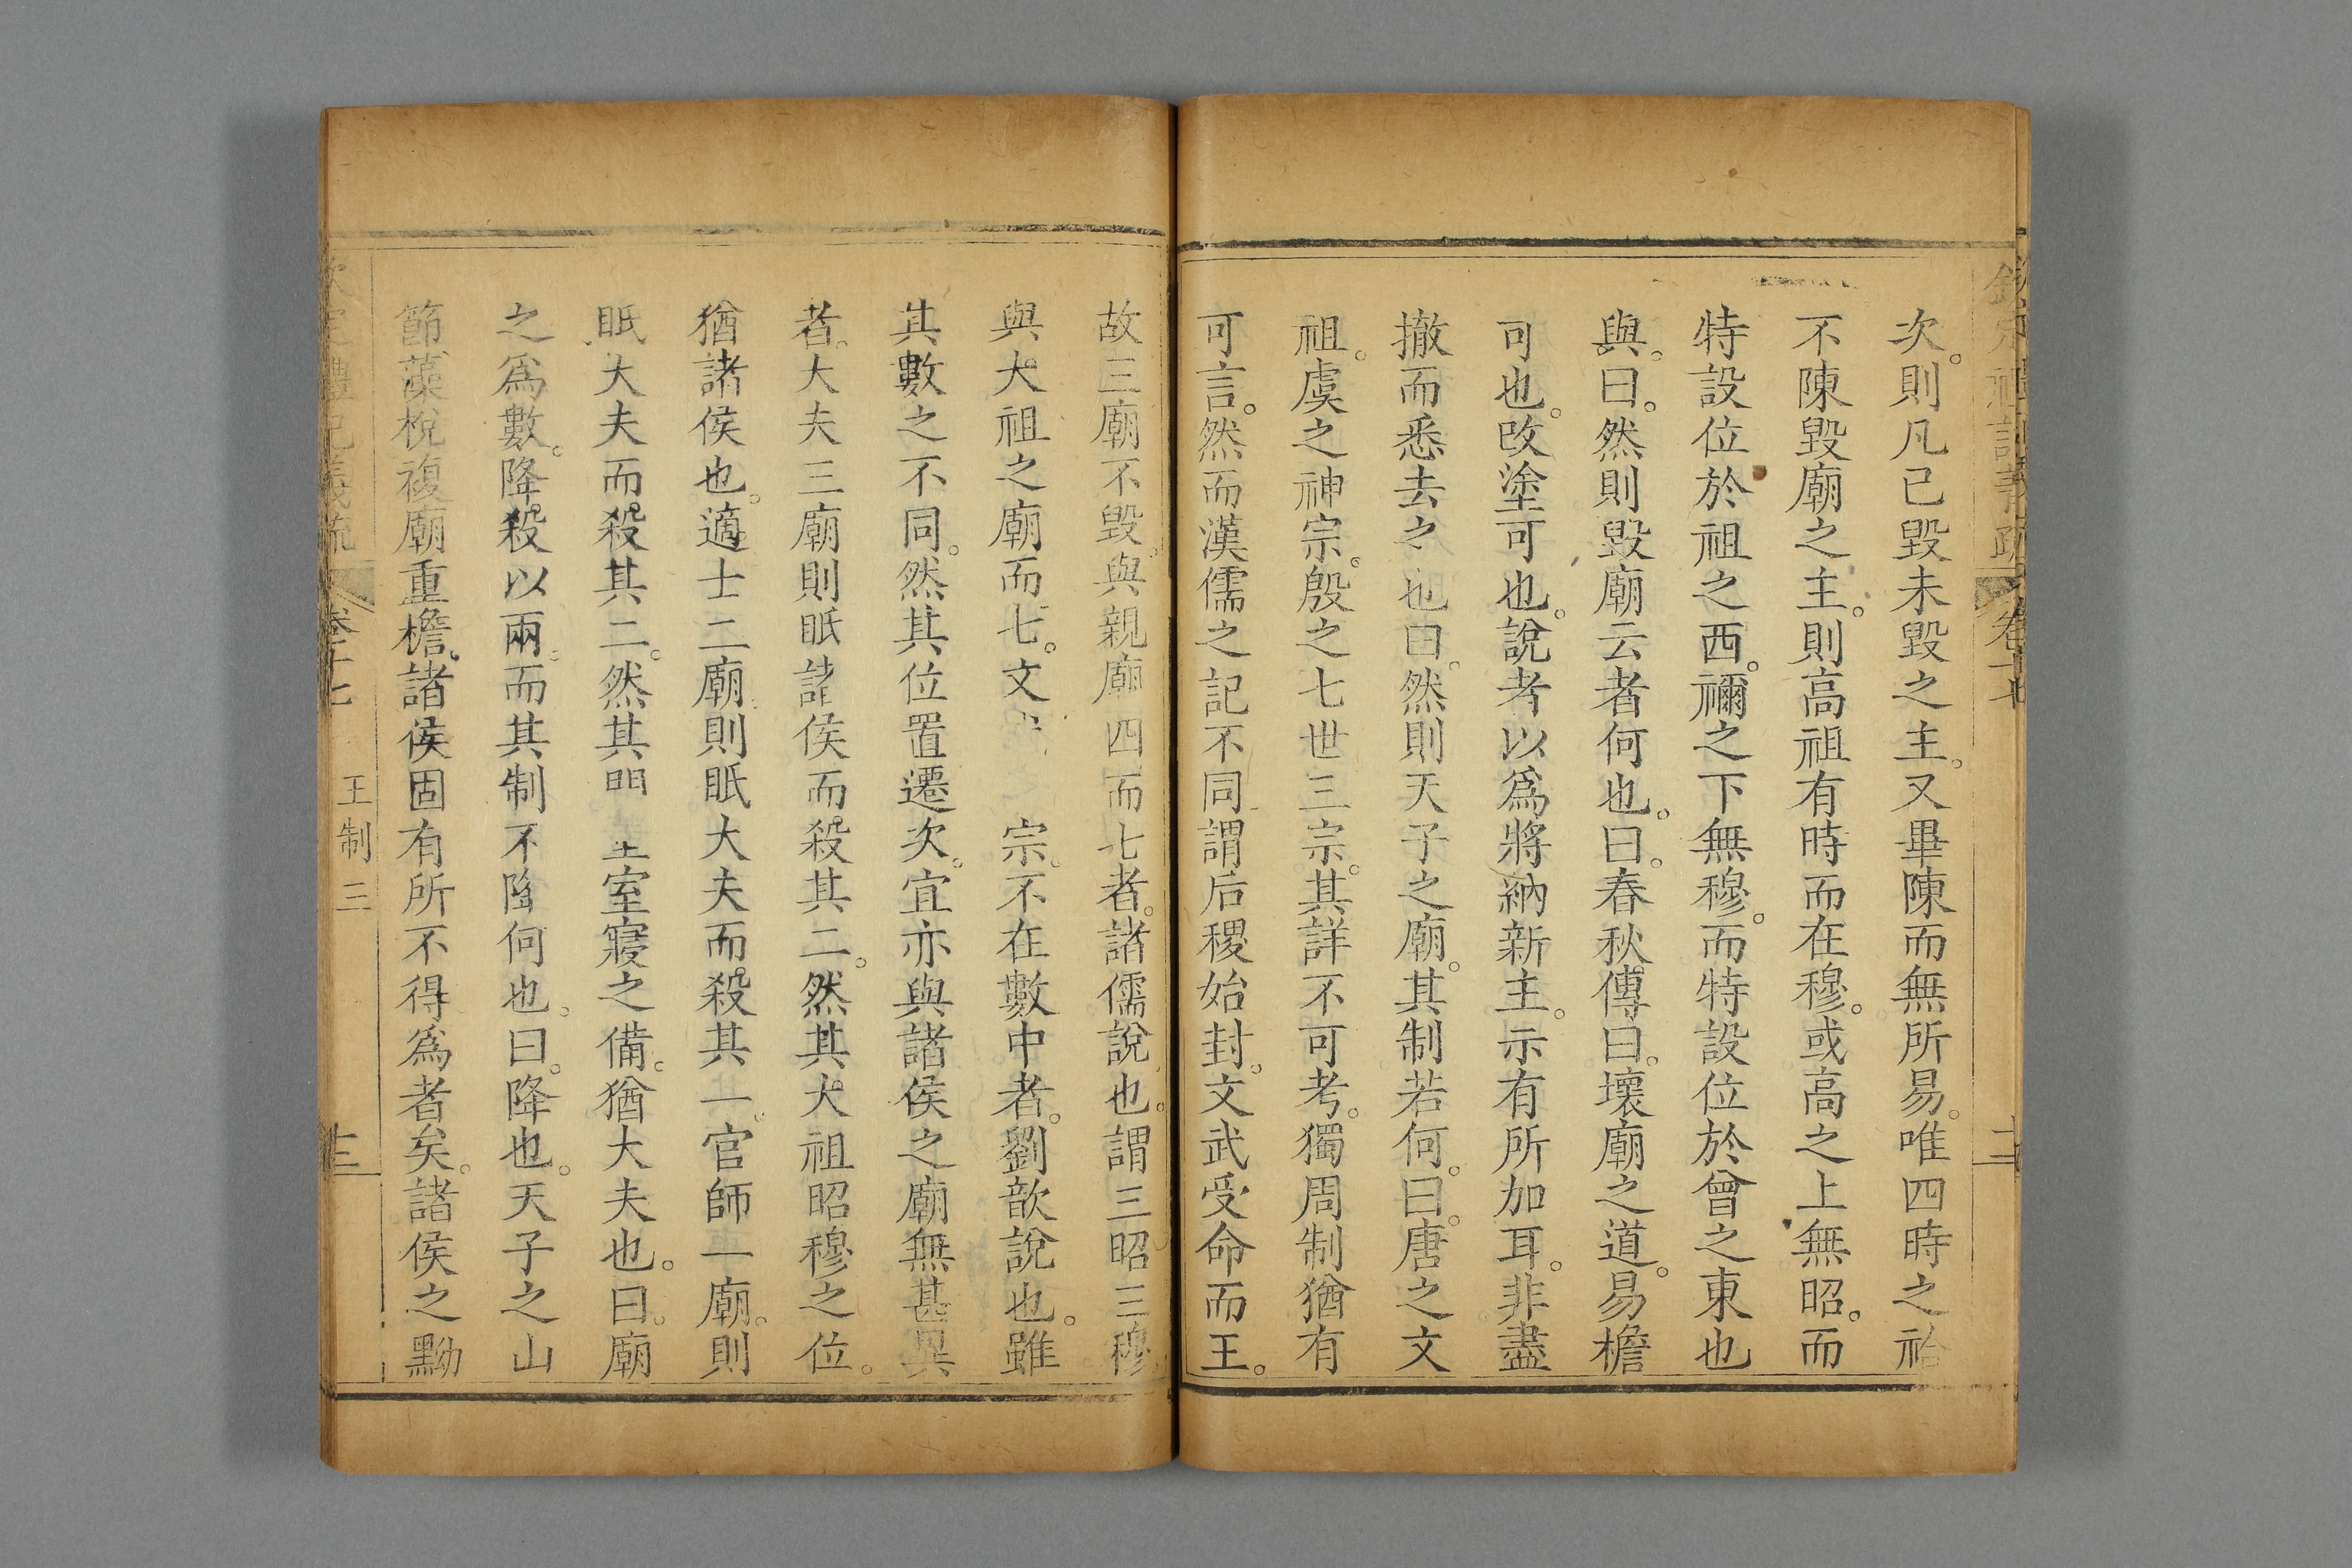 次。則凡已毀未毀之主。又畢陳而無所易。唯四時之祫
不陳毀廟之主。則高祖有時而在穆。或高之上無昭。而
特設位於祖之西。禰之下無穆。而特設位於曾之東也
與。曰。然則毀廟云者何也。曰。春秋傳曰。壞廟之道。易檐
可也。改塗可也。說者以爲將納新主。示有所加耳。非盡
撤而悉去之也曰。然則天子之廟。其制若何。曰。唐之文
祖。虞之神宗。殷之七世三宗。其詳不可考。獨周制猶有
可言。然而漢儒之記不同謂后稷始封。文武受命而王。
故三廟不毀。與親廟四而七者。諸儒說也。謂三昭三穆
與大祖之廟而七。文 宗。不在數中者。劉歆說也。雖
其數之不同。然其位置遷次。宜亦與諸侯之廟無甚異
者。大夫三廟則眂諸侯而殺其二。然其大祖昭穆之位。
猶諸侯也。適士二廟則眂大夫而殺其一。官師一廟。則
眂大夫而殺其二。然其門 室寢之備。猶大夫也。曰。廟
之爲數。降殺以兩。而其制不降何也。曰。降也。天子之山
節藻梲複廟重檐。諸侯固有所不得爲者矣。諸侯之黝
欽定禮記義疏 卷十七 王制 三